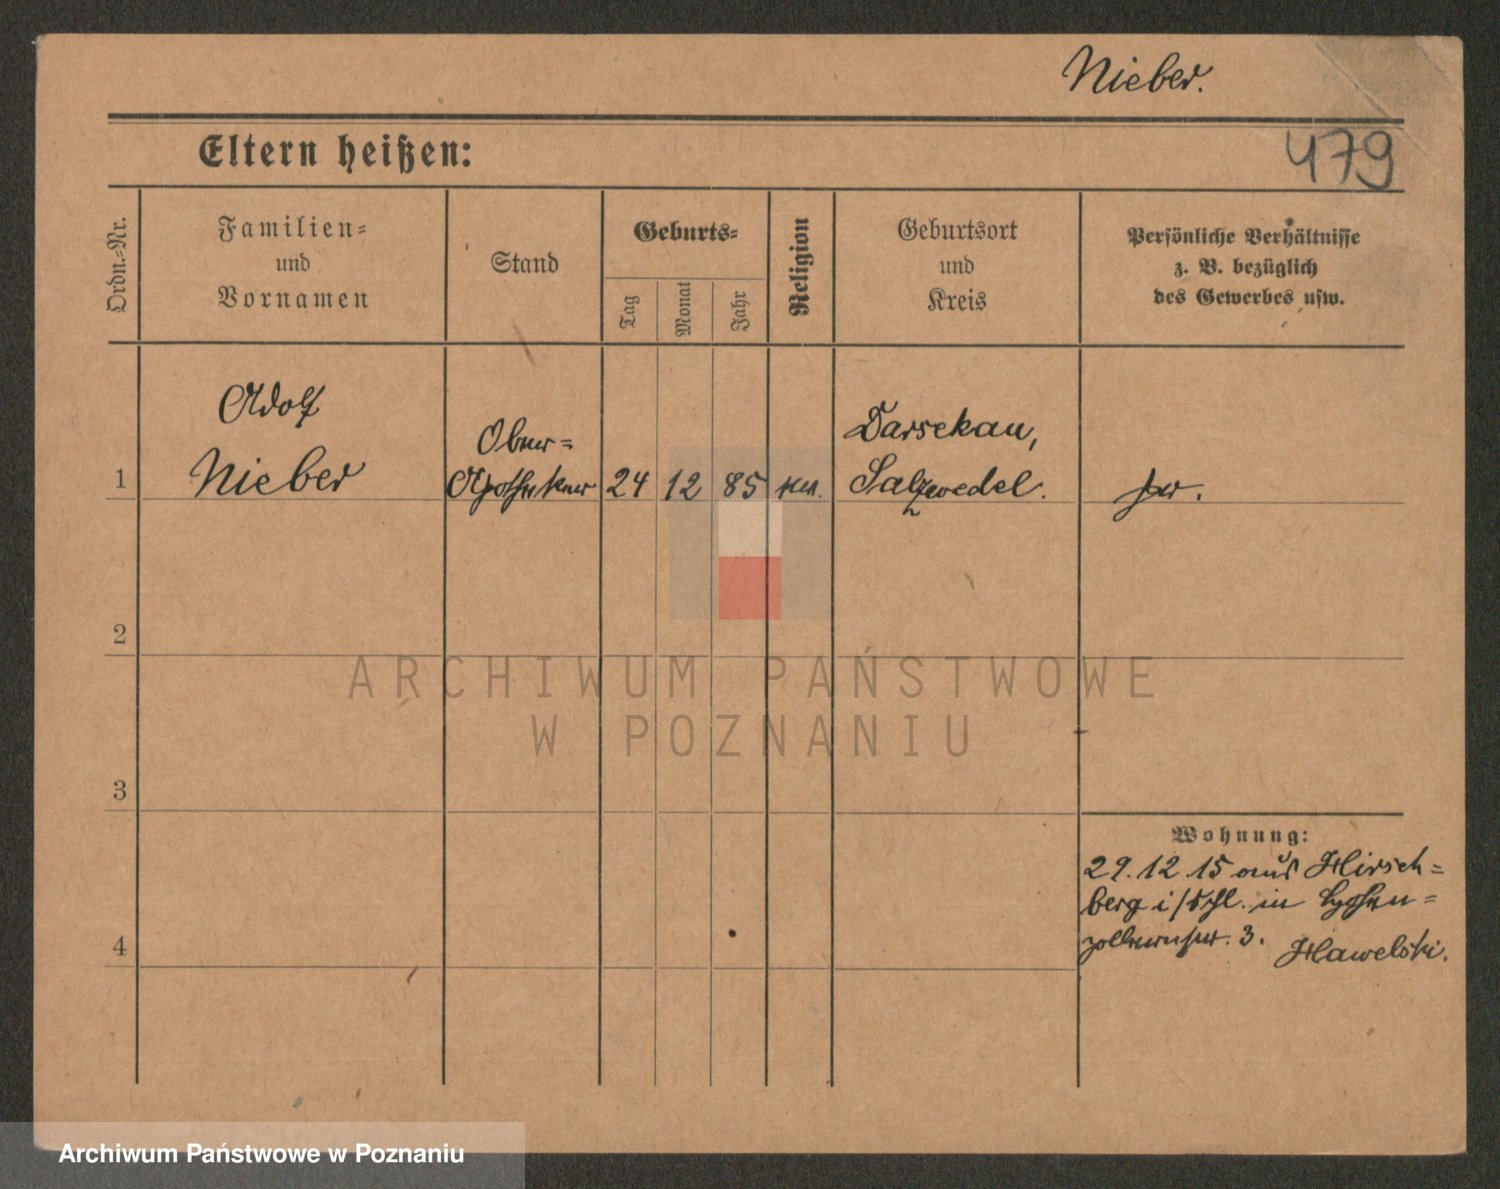 Nieber.
Eltern heißen:
479
Ordn.=Nr.
Familien=
und
Vornamen
Stand
Geburts=
Tag
Monat
Jahr
Religion
Geburtsort
und
Kreis
Persönliche Verhältnisse
z. B. bezüglich
des Gewerbes usw.
1
Adolf
Nieber
Ober=
Apotheker
24
12
85
Darsekau,
Salzwedel.
2
3
4
Wohnung:
29.12.15 aus Hirsch=
berg i/Schl. in Hohen=
zollernstr. 3. Hawelski.
ARCHIWUM PAŃSTWOWE
W POZNANIU
Archiwum Państwowe w Poznaniu